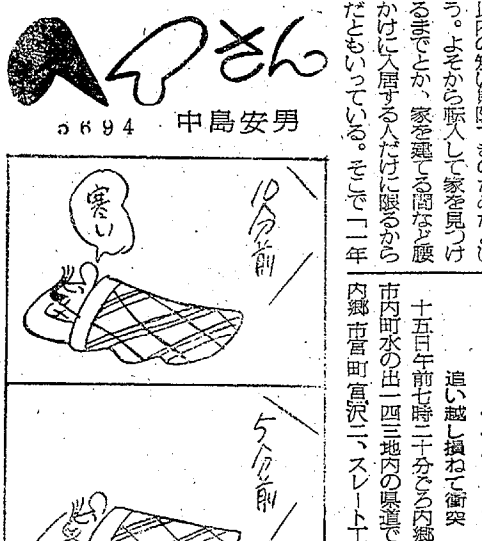 う。よそから転入して家を見つけ
るまでとか、家を建てる間など腰
かけに入居する人だけに限るから
だともいっている。そこで「一年
追い越し損ねて衝突
十五日午前七時二十分ごろ内郷
市内町水の出一四三地内の県道で
内郷市宮町宮沢二、スレート工
ヘイさん
5694 中島安男
10分前
寒い
5分前